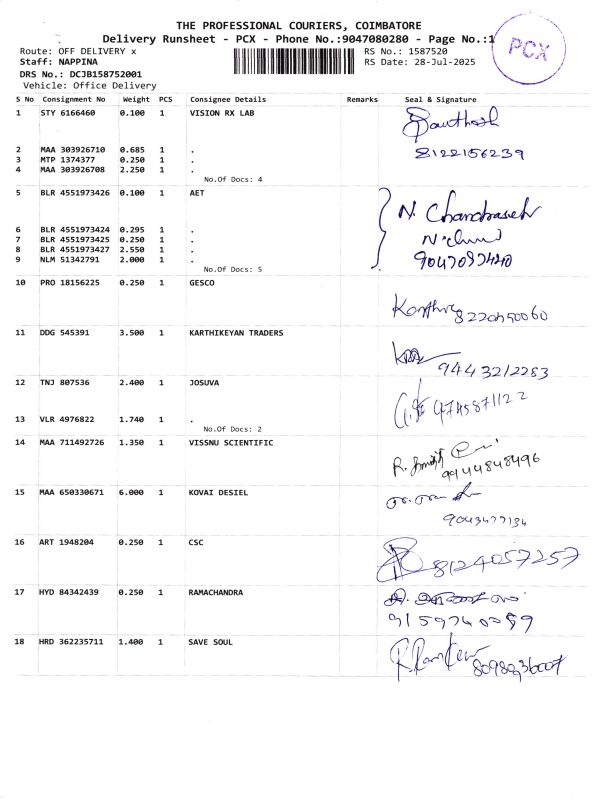 THE PROFESSIONAL COURIERS, COIMBATORE
Delivery Runsheet - PCX - Phone No.:9047080280 - Page No.:1
PCX
Route: OFF DELIVERY x RS No.: 1587520
Staff: NAPPINA RS Date: 28-Jul-2025
DRS No.: DCJB158752001
Vehicle: Office Delivery
S No Consignment No Weight PCS Consignee Details Remarks Seal & Signature
1 STY 6166460 0.100 1 VISION RX LAB
2 MAA 303926710 0.685 1 . 8122156239
3 MTP 1374377 0.250 1 .
4 MAA 303926708 2.250 1 .
No.Of Docs: 4
5 BLR 4551973426 0.100 1 AET
N. Chandrasek
6 BLR 4551973424 0.295 1 .
7 BLR 4551973425 0.250 1 .
8 BLR 4551973427 2.550 1 .
9 NLM 51342791 2.000 1 .
No.Of Docs: 5
10 PRO 18156225 0.250 1 GESCO
11 DDG 545391 3.500 1 KARTHIKEYAN TRADERS
9443212253
12 TNJ 807536 2.400 1 JOSUVA
13 VLR 4976822 1.740 1 .
No.Of Docs: 2
14 MAA 711492726 1.350 1 VISSNU SCIENTIFIC
9944848496
15 MAA 650330671 6.000 1 KOVAI DESIEL
9043477134
16 ART 1948204 0.250 1 CSC
8124057257
17 HYD 84342439 0.250 1 RAMACHANDRA
9159740059
18 HRD 362235711 1.400 1 SAVE SOUL